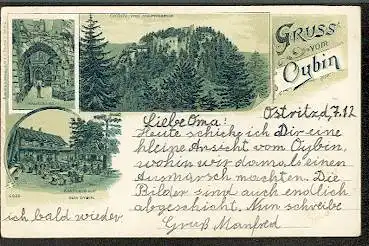 GRUSS
vom
Oybin
Ostritz d. 7.12
Liebe Oma!
Heute schicke ich Dir eine
kleine Ansicht vom Oybin,
wohin wir damals einen
Ausmarsch machten. Die
Bilder sind auch endlich
abgeschickt. Nun schreibe
ich bald wieder.
Gruß Manfred